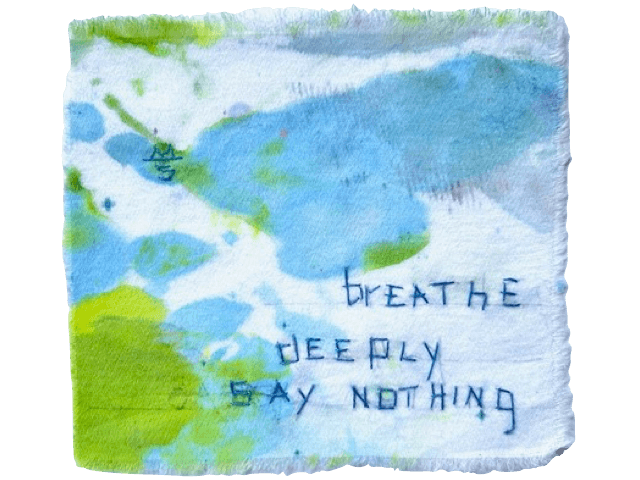 brEAThE
dEEpLY
SAY NOTHINg